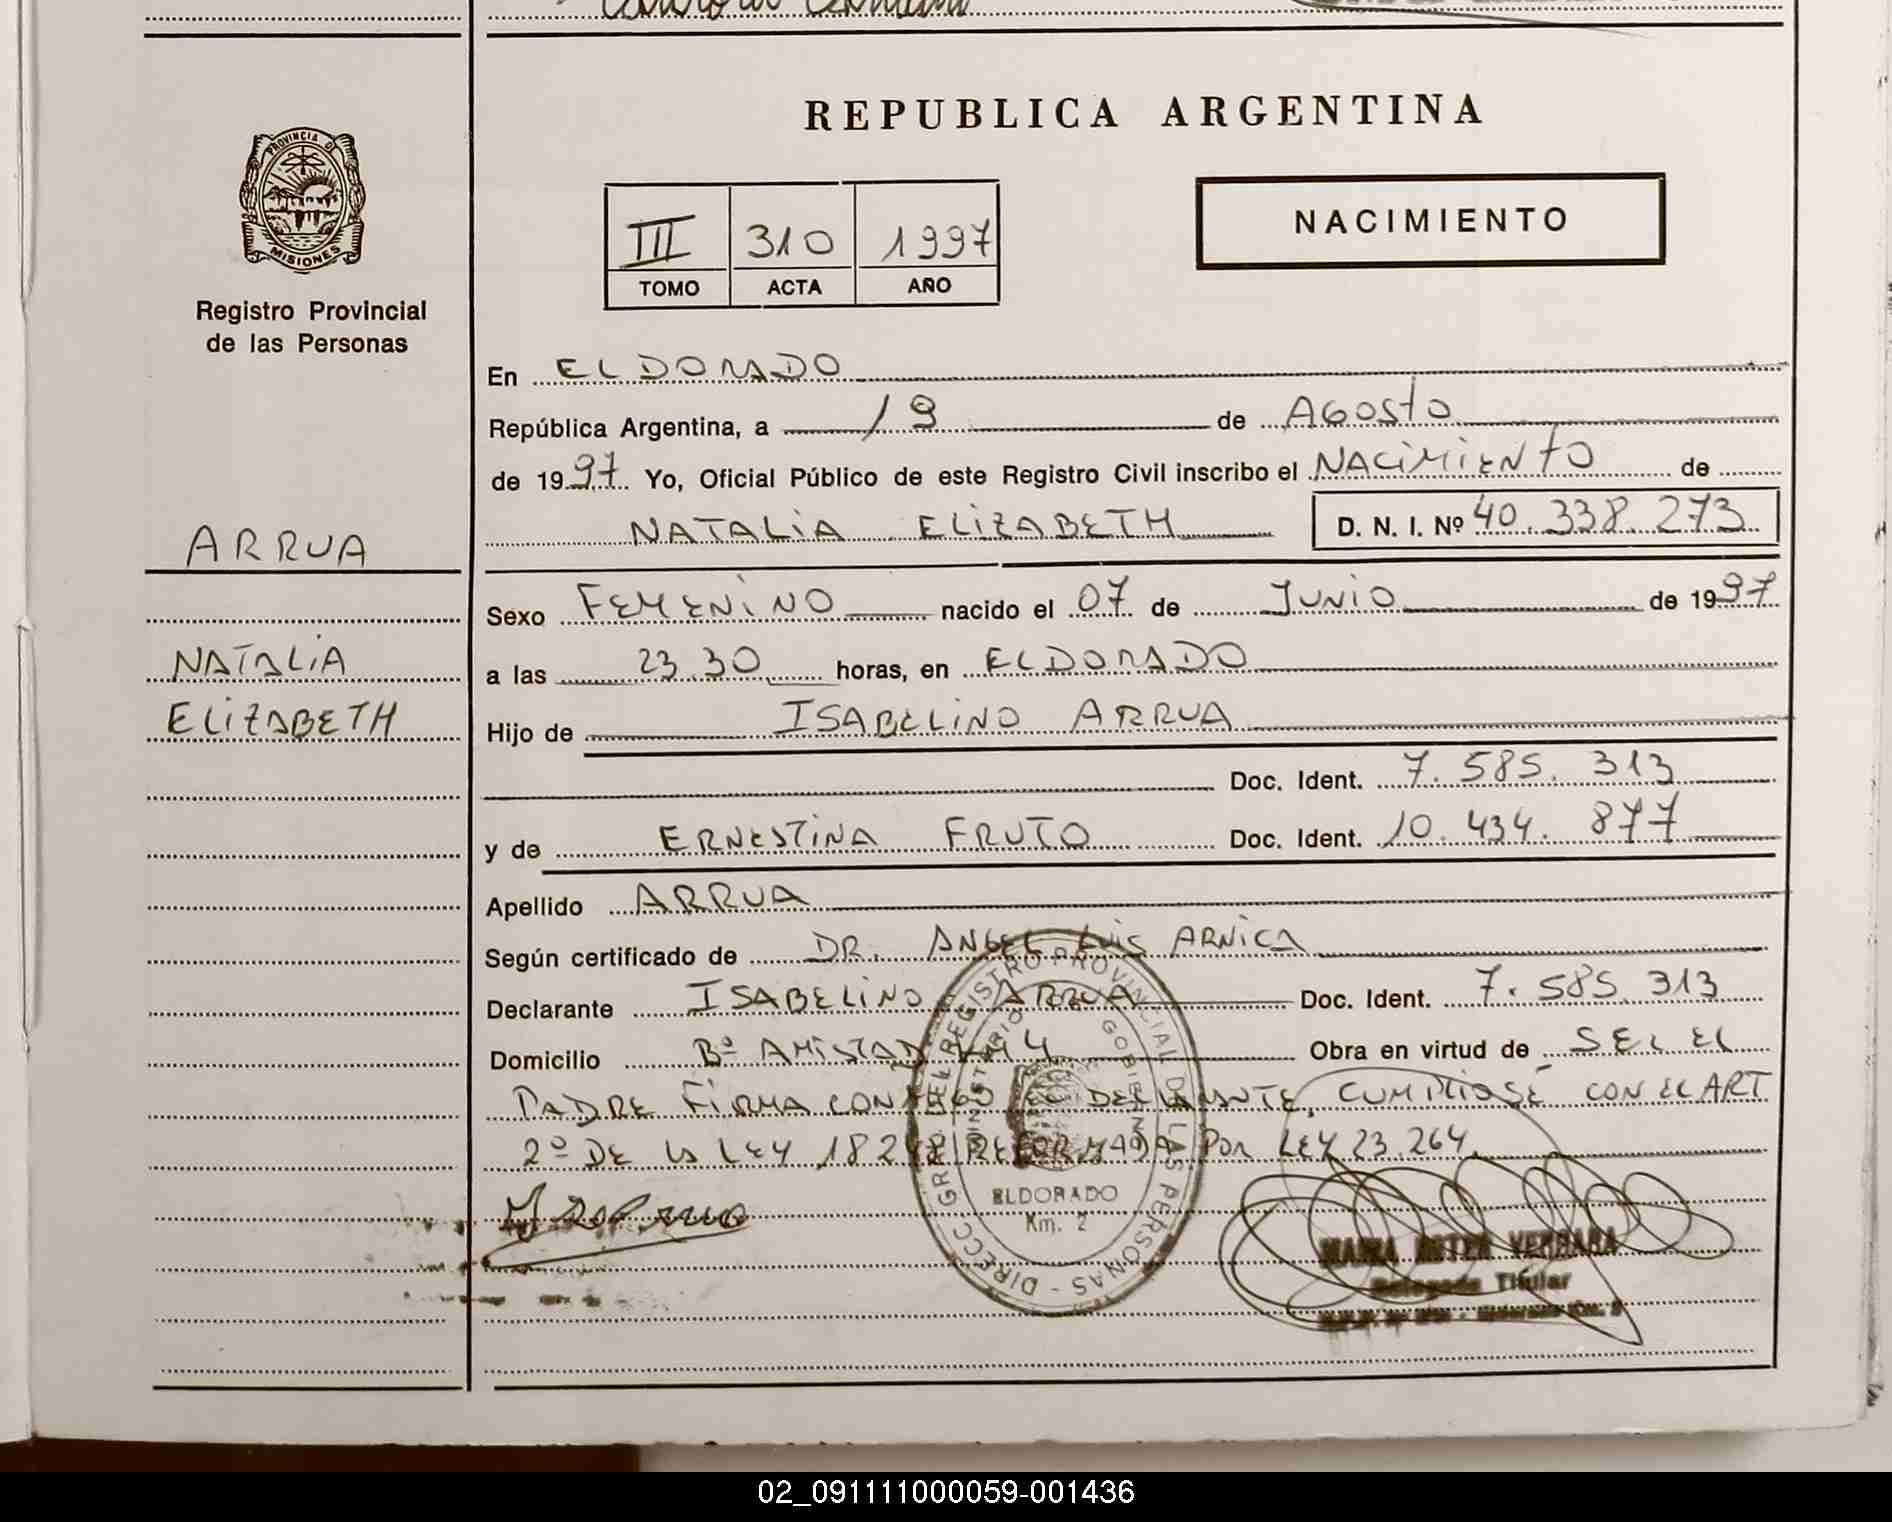 REPUBLICA ARGENTINA
PROVINCIA DE
MISIONES
Registro Provincial
de las Personas
NACIMIENTO
III 310 1997
TOMO ACTA AÑO
En ELDORADO
República Argentina, a 19 de AGOSTO
de 1997 Yo, Oficial Público de este Registro Civil inscribo el NACIMIENTO de
NATALIA ELIZABETH D. N. I. Nº 40.338.273
ARRUA
NATALIA
ELIZABETH
Sexo FEMENINO nacido el 07 de JUNIO de 1997
a las 23.30 horas, en ELDORADO
Hijo de ISABELINO ARRUA
Doc. Ident. 7.585.313
y de ERNESTINA FRUTO Doc. Ident. 10.434.877
Apellido ARRUA
Según certificado de DR. ANGEL LUIS ARNICA
Declarante ISABELINO ARRUA Doc. Ident. 7.585.313
Domicilio Bº AMISTAD KM 4 Obra en virtud de SER EL
PADRE FIRMA CONMIGO EL DECLARANTE, CUMPLIOSÉ CON EL ART
2º DE LA LEY 18248 REFORMADA POR LEY 23.264
DIRECC. GRAL. DEL REGISTRO PROVINCIAL DE LAS PERSONAS
MINISTERIO GOBIERNO
ELDORADO
Km. 2
MARIA ESTER VERGARA
Delegada Titular
02_091111000059-001436